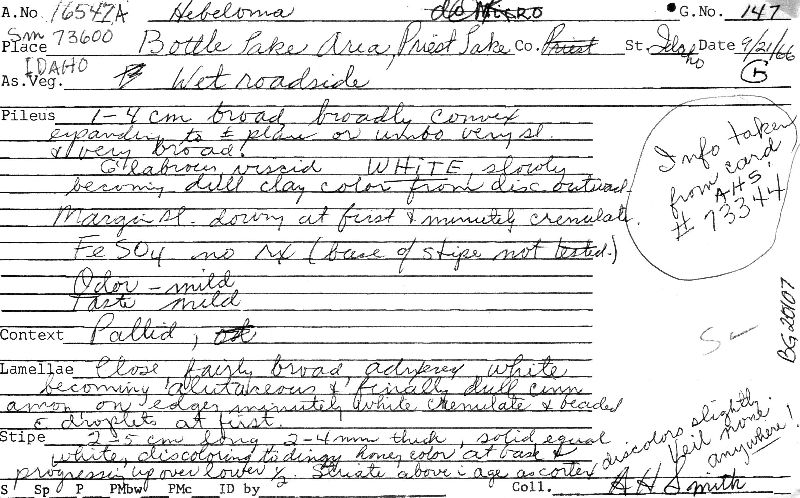 A.No. 16547A Hebeloma do Micro G.No. 147
Sm 73600
Place Bottle Lake Area, Priest Lake Co. Priest St. Idaho Date 9/21/66
IDAHO
As.Veg. Wet roadside 5
Pileus 1-4 cm broad broadly convex
expanding to ± plane or umbo very sl.
& very broad.
Glabrous, viscid WHITE, slowly
becoming dull clay color from disc outward
Margin sl. downy at first & minutely crenulate.
FeSO4 no rx (base of stipe not tested.)
Odor - mild
Taste mild
Info taken
from card
AHS
# 73344
Context Pallid,
BG20107
Lamellae Close fairly broad adnexed, white
becoming alutaceous & finally dull cinn
amon, on edges minutely white crenulate & beaded
c droplets at first.
Stipe 2-5 cm long 2-4 mm thick, solid equal
white, discoloring to dingy honey color at base &
progressing up over lower 1/2. Striate above c age as cortex
discolors slightly.
Veil none
anywhere!
S Sp P PMbw PMc ID by Coll. AH Smith